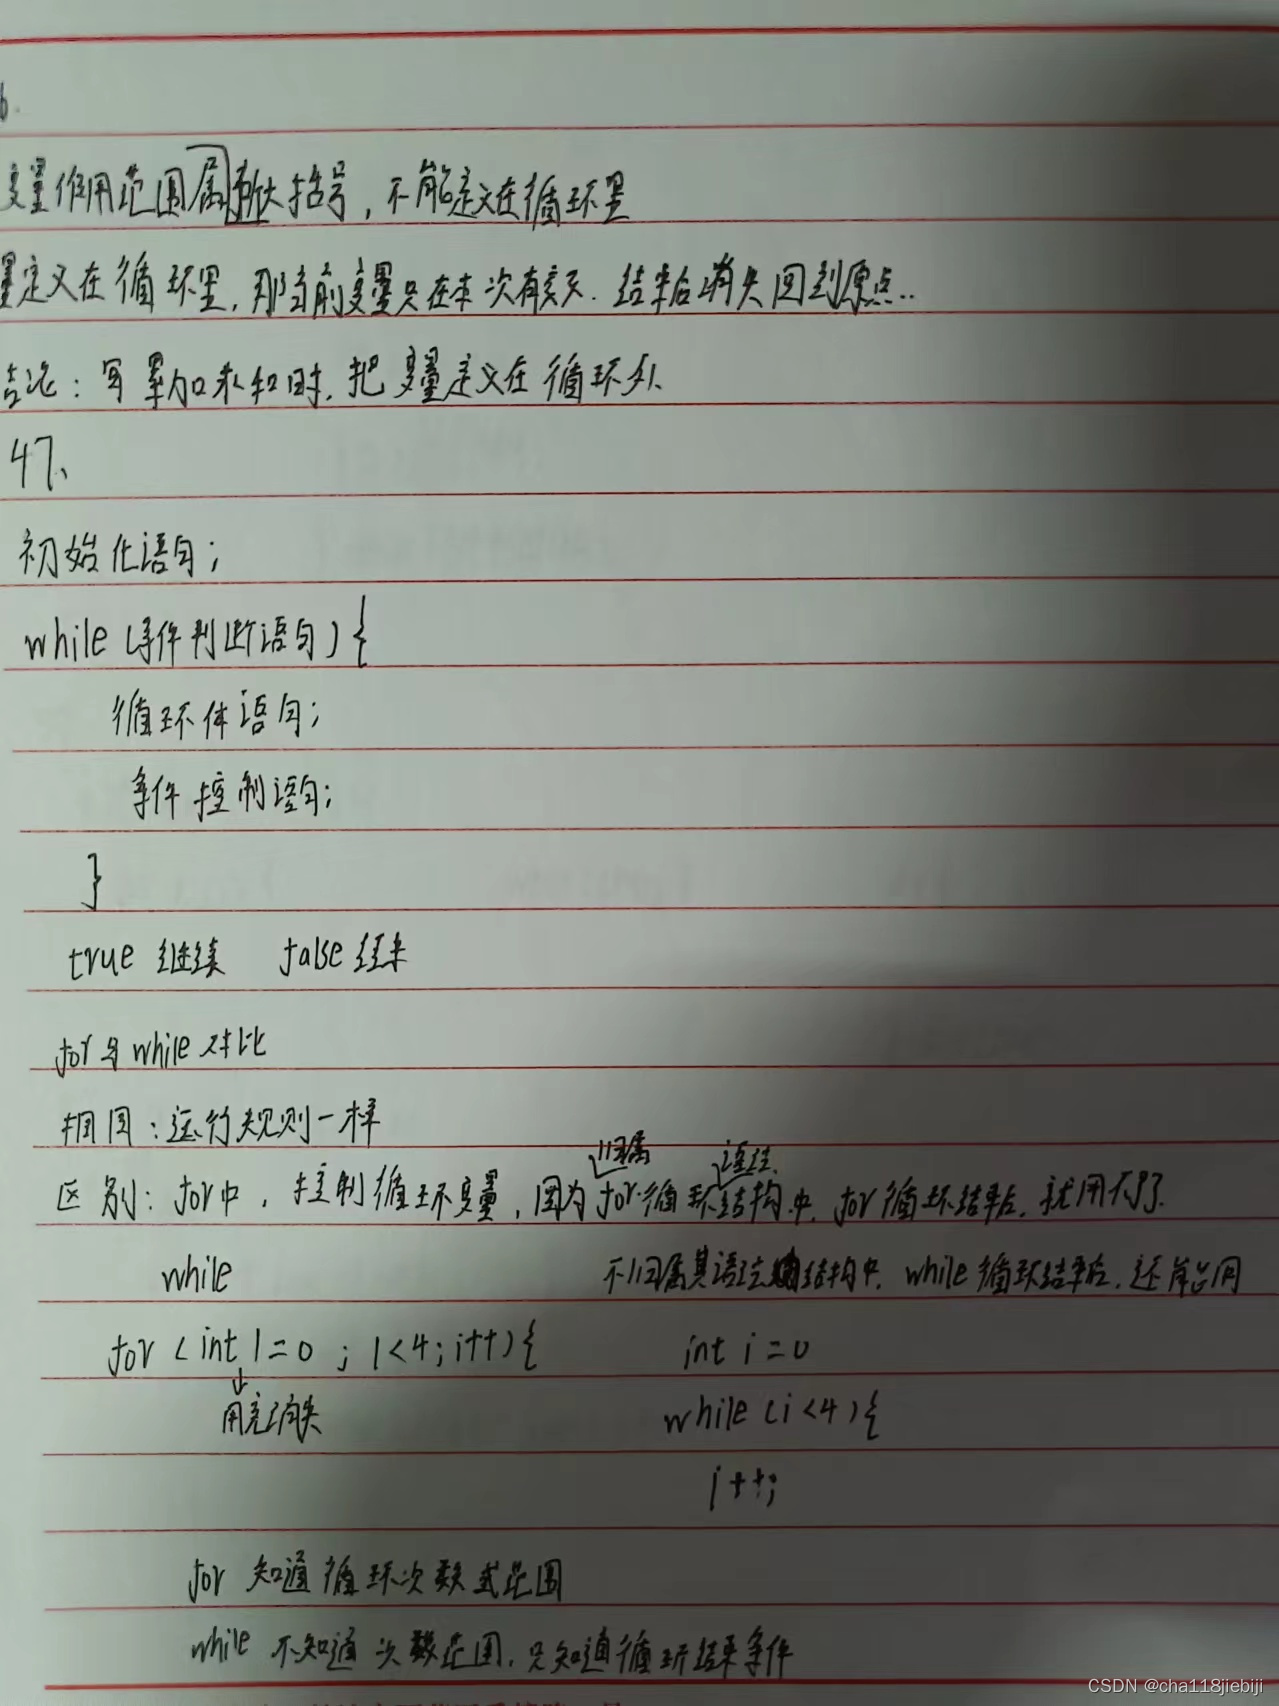 6.
变量作用范围属所大括号，不能定义在循环里
量定义在循环里，那当前变量只在本次有效. 结束后消失回到原点..
结论：写累加求和时. 把变量定义在循环外.
47、
初始化语句；
while (条件判断语句) {
循环体语句；
条件控制语句；
}
true 继续 false 结束
for与while对比
相同：运行规则一样
归属 语法
区别：for中，控制循环变量，因为for循环结构中. for循环结束后. 就用不了.
while 不归属其语法结构中. while循环结束后. 还能用
for (int i=0 ; i<4; i++) { int i=0
用完消失 while (i<4) {
i++;
for 知道循环次数或范围
while 不知道次数范围. 只知道循环结束条件
CSDN @cha118jiebiji